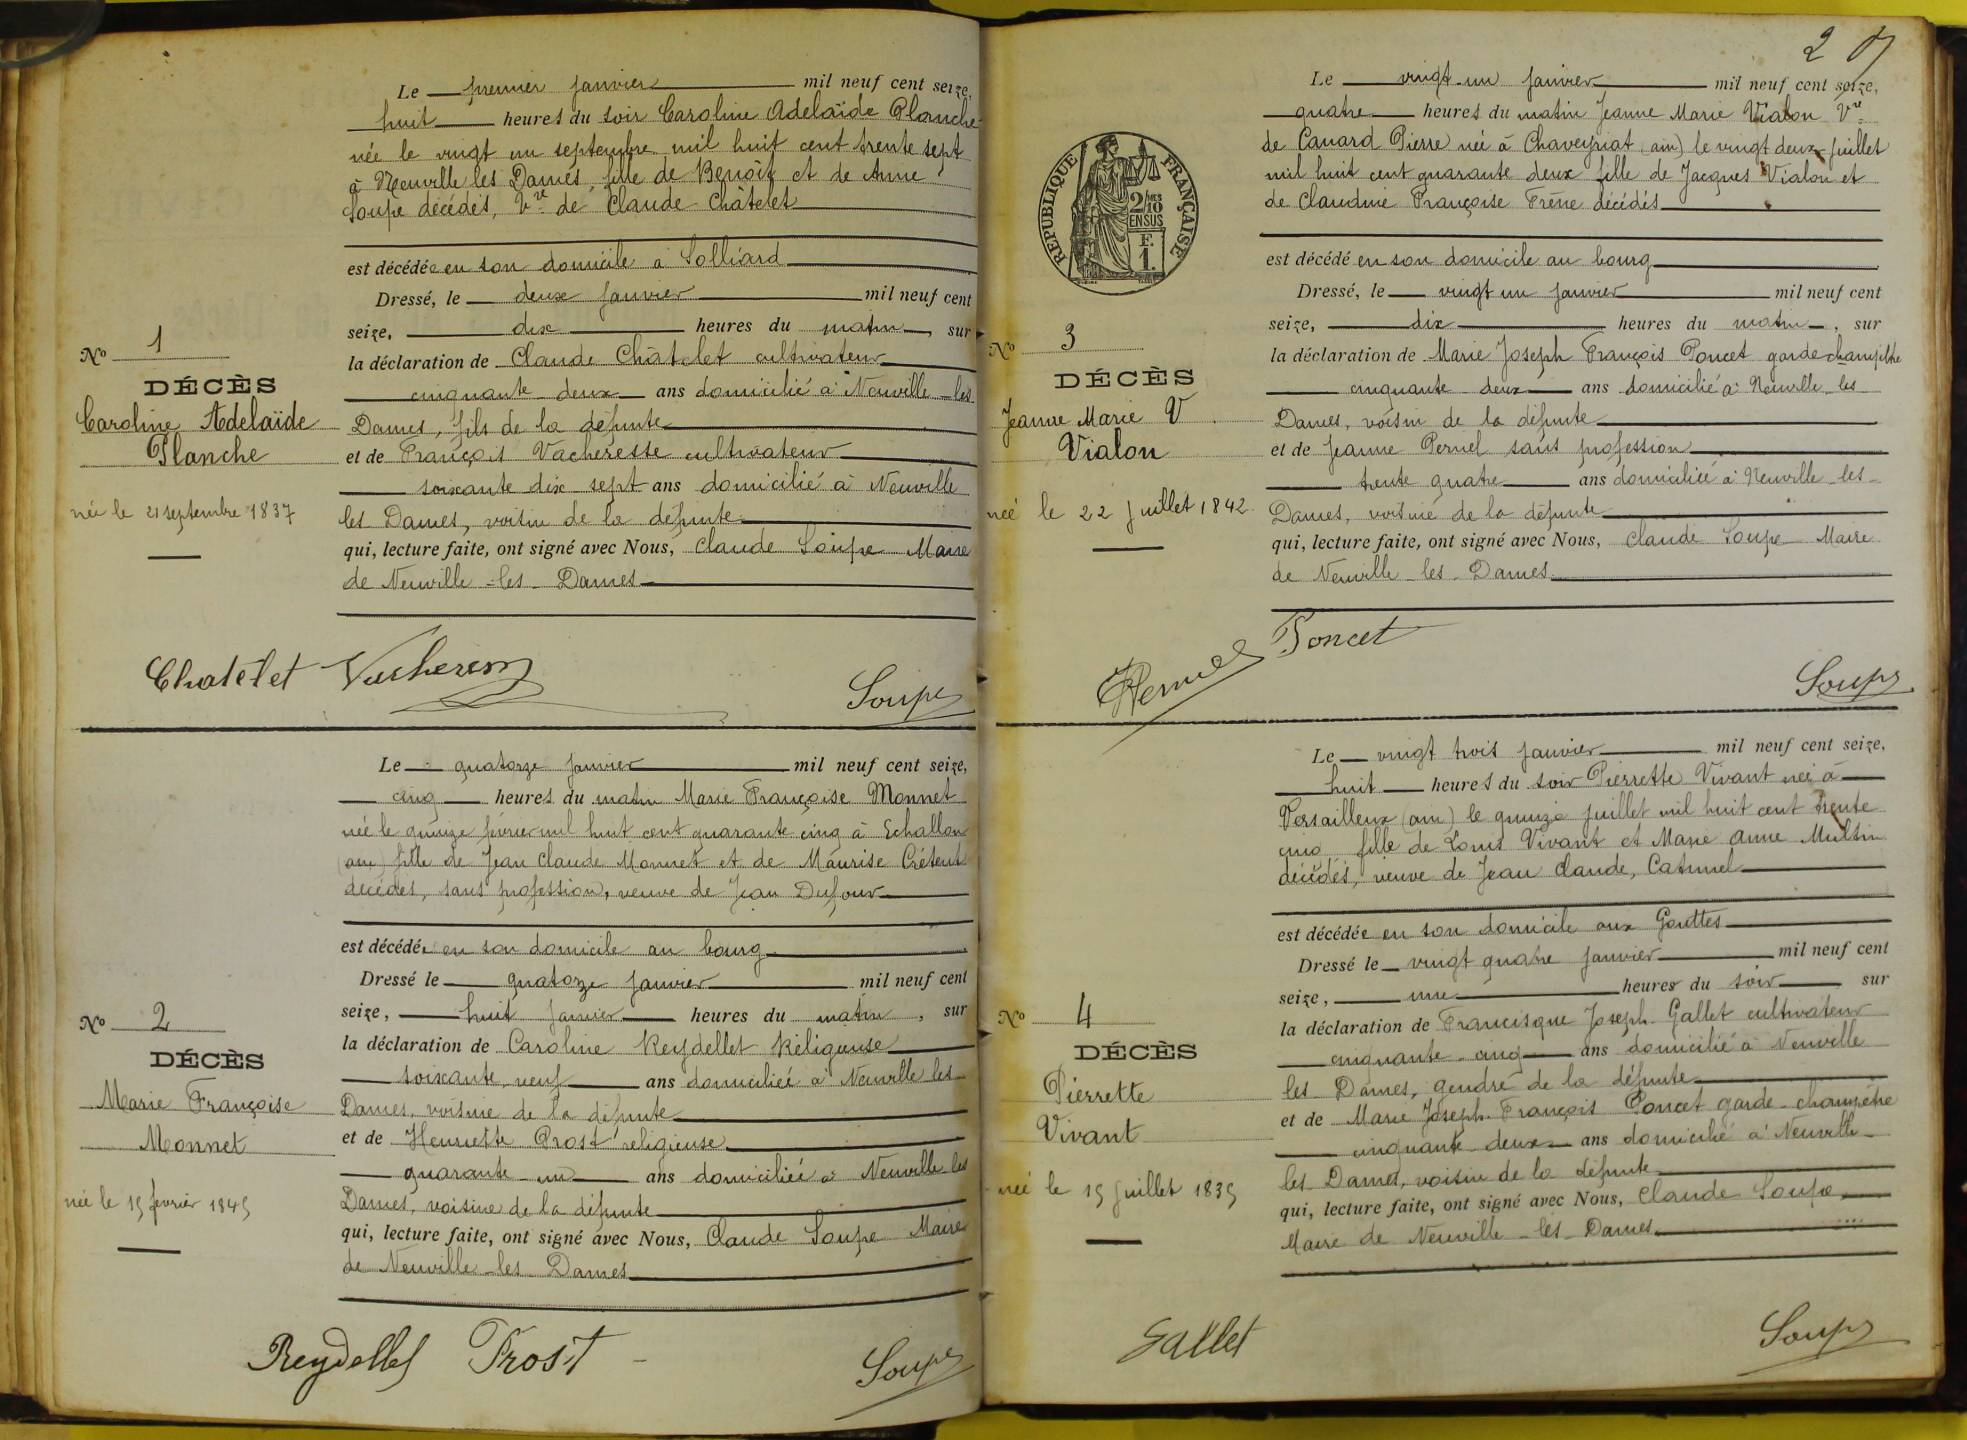 Le premier janvier mil neuf cent seize,
huit heures du soir Caroline Adelaïde Planche
née le vingt un septembre mil huit cent trente sept
à Neuville les Dames, fille de Benoît et de Anne
Soupe décédés, Vve de Claude Châtelet
est décédée en son domicile à Solliard
Dressé, le deux janvier mil neuf cent
seize, dix heures du matin, sur
la déclaration de Claude Châtelet cultivateur
cinquante deux ans domicilié à Neuville-les
Dames, fils de la défunte
et de François Vacheresse cultivateur
soixante dix sept ans domicilié à Neuville
les Dames, voisin de la défunte
qui, lecture faite, ont signé avec Nous, Claude Soupe Maire
de Neuville-les-Dames
No 1
DÉCÈS
Caroline Adelaïde
Planche
née le 21 septembre 1837
Chatelet Soupe
Le quatorze janvier mil neuf cent seize,
cinq heures du matin Marie Françoise Monnet
née le quinze février mil huit cent quarante cinq à Echallon
(ain) fille de Jean Claude Monnet et de Maurise Crétent
décédés, sans profession, veuve de Jean Dufour
est décédée en son domicile au bourg
Dressé le quatorze janvier mil neuf cent
seize, huit janvier heures du matin, sur
la déclaration de Caroline Reydellet Religieuse
soixante neuf ans domiciliée à Neuville les
Dames, voisine de la défunte
et de Henriette Prost religieuse
quarante un ans domiciliée à Neuville les
Dames, voisine de la défunte
qui, lecture faite, ont signé avec Nous, Claude Soupe Maire
de Neuville-les-Dames
No 2
DÉCÈS
Marie Françoise
Monnet
née le 15 février 1845
Reydellet Prost Soupe
2
RÉPUBLIQUE FRANÇAISE
2/10
EN SUS
F.
1.
Le vingt-un janvier mil neuf cent seize,
quatre heures du matin Jeanne Marie Vialon Vve
de Canard Pierre née à Chaveyriat (ain) le vingt deux juillet
mil huit cent quarante deux fille de Jacques Vialon et
de Claudine Françoise Frêne décédés
est décédé en son domicile au bourg
Dressé, le vingt un janvier mil neuf cent
seize, dix heures du matin, sur
la déclaration de Marie Joseph François Poncet garde champêtre
cinquante deux ans domicilié à Neuville les
Dames, voisin de la défunte
et de Jeanne Pernel sans profession
trente quatre ans domiciliée à Neuville-les-
Dames, voisine de la défunte
qui, lecture faite, ont signé avec Nous, Claude Soupe Maire
de Neuville-les-Dames
No 3
DÉCÈS
Jeanne Marie V
Vialon
née le 22 juillet 1842
Poncet Soupe
Le vingt trois janvier mil neuf cent seize,
huit heures du soir Pierrette Vivant née à
Versailleux (ain) le quinze juillet mil huit cent trente
cinq fille de Louis Vivant et Marie Anne Multin
décédés, veuve de Jean Claude, Catimel
est décédée en son domicile aux Gouttes
Dressé le vingt quatre janvier mil neuf cent
seize, une heures du soir sur
la déclaration de Francisque Joseph Gallet cultivateur
cinquante-cinq ans domicilié à Neuville
les Dames, gendre de la défunte
et de Marie Joseph François Poncet garde-champêtre
cinquante deux ans domicilié à Neuville-
les Dames, voisin de la défunte
qui, lecture faite, ont signé avec Nous, Claude Soupe,
Maire de Neuville-les-Dames
No 4
DÉCÈS
Pierrette
Vivant
née le 15 juillet 1835
Gallet Soupe